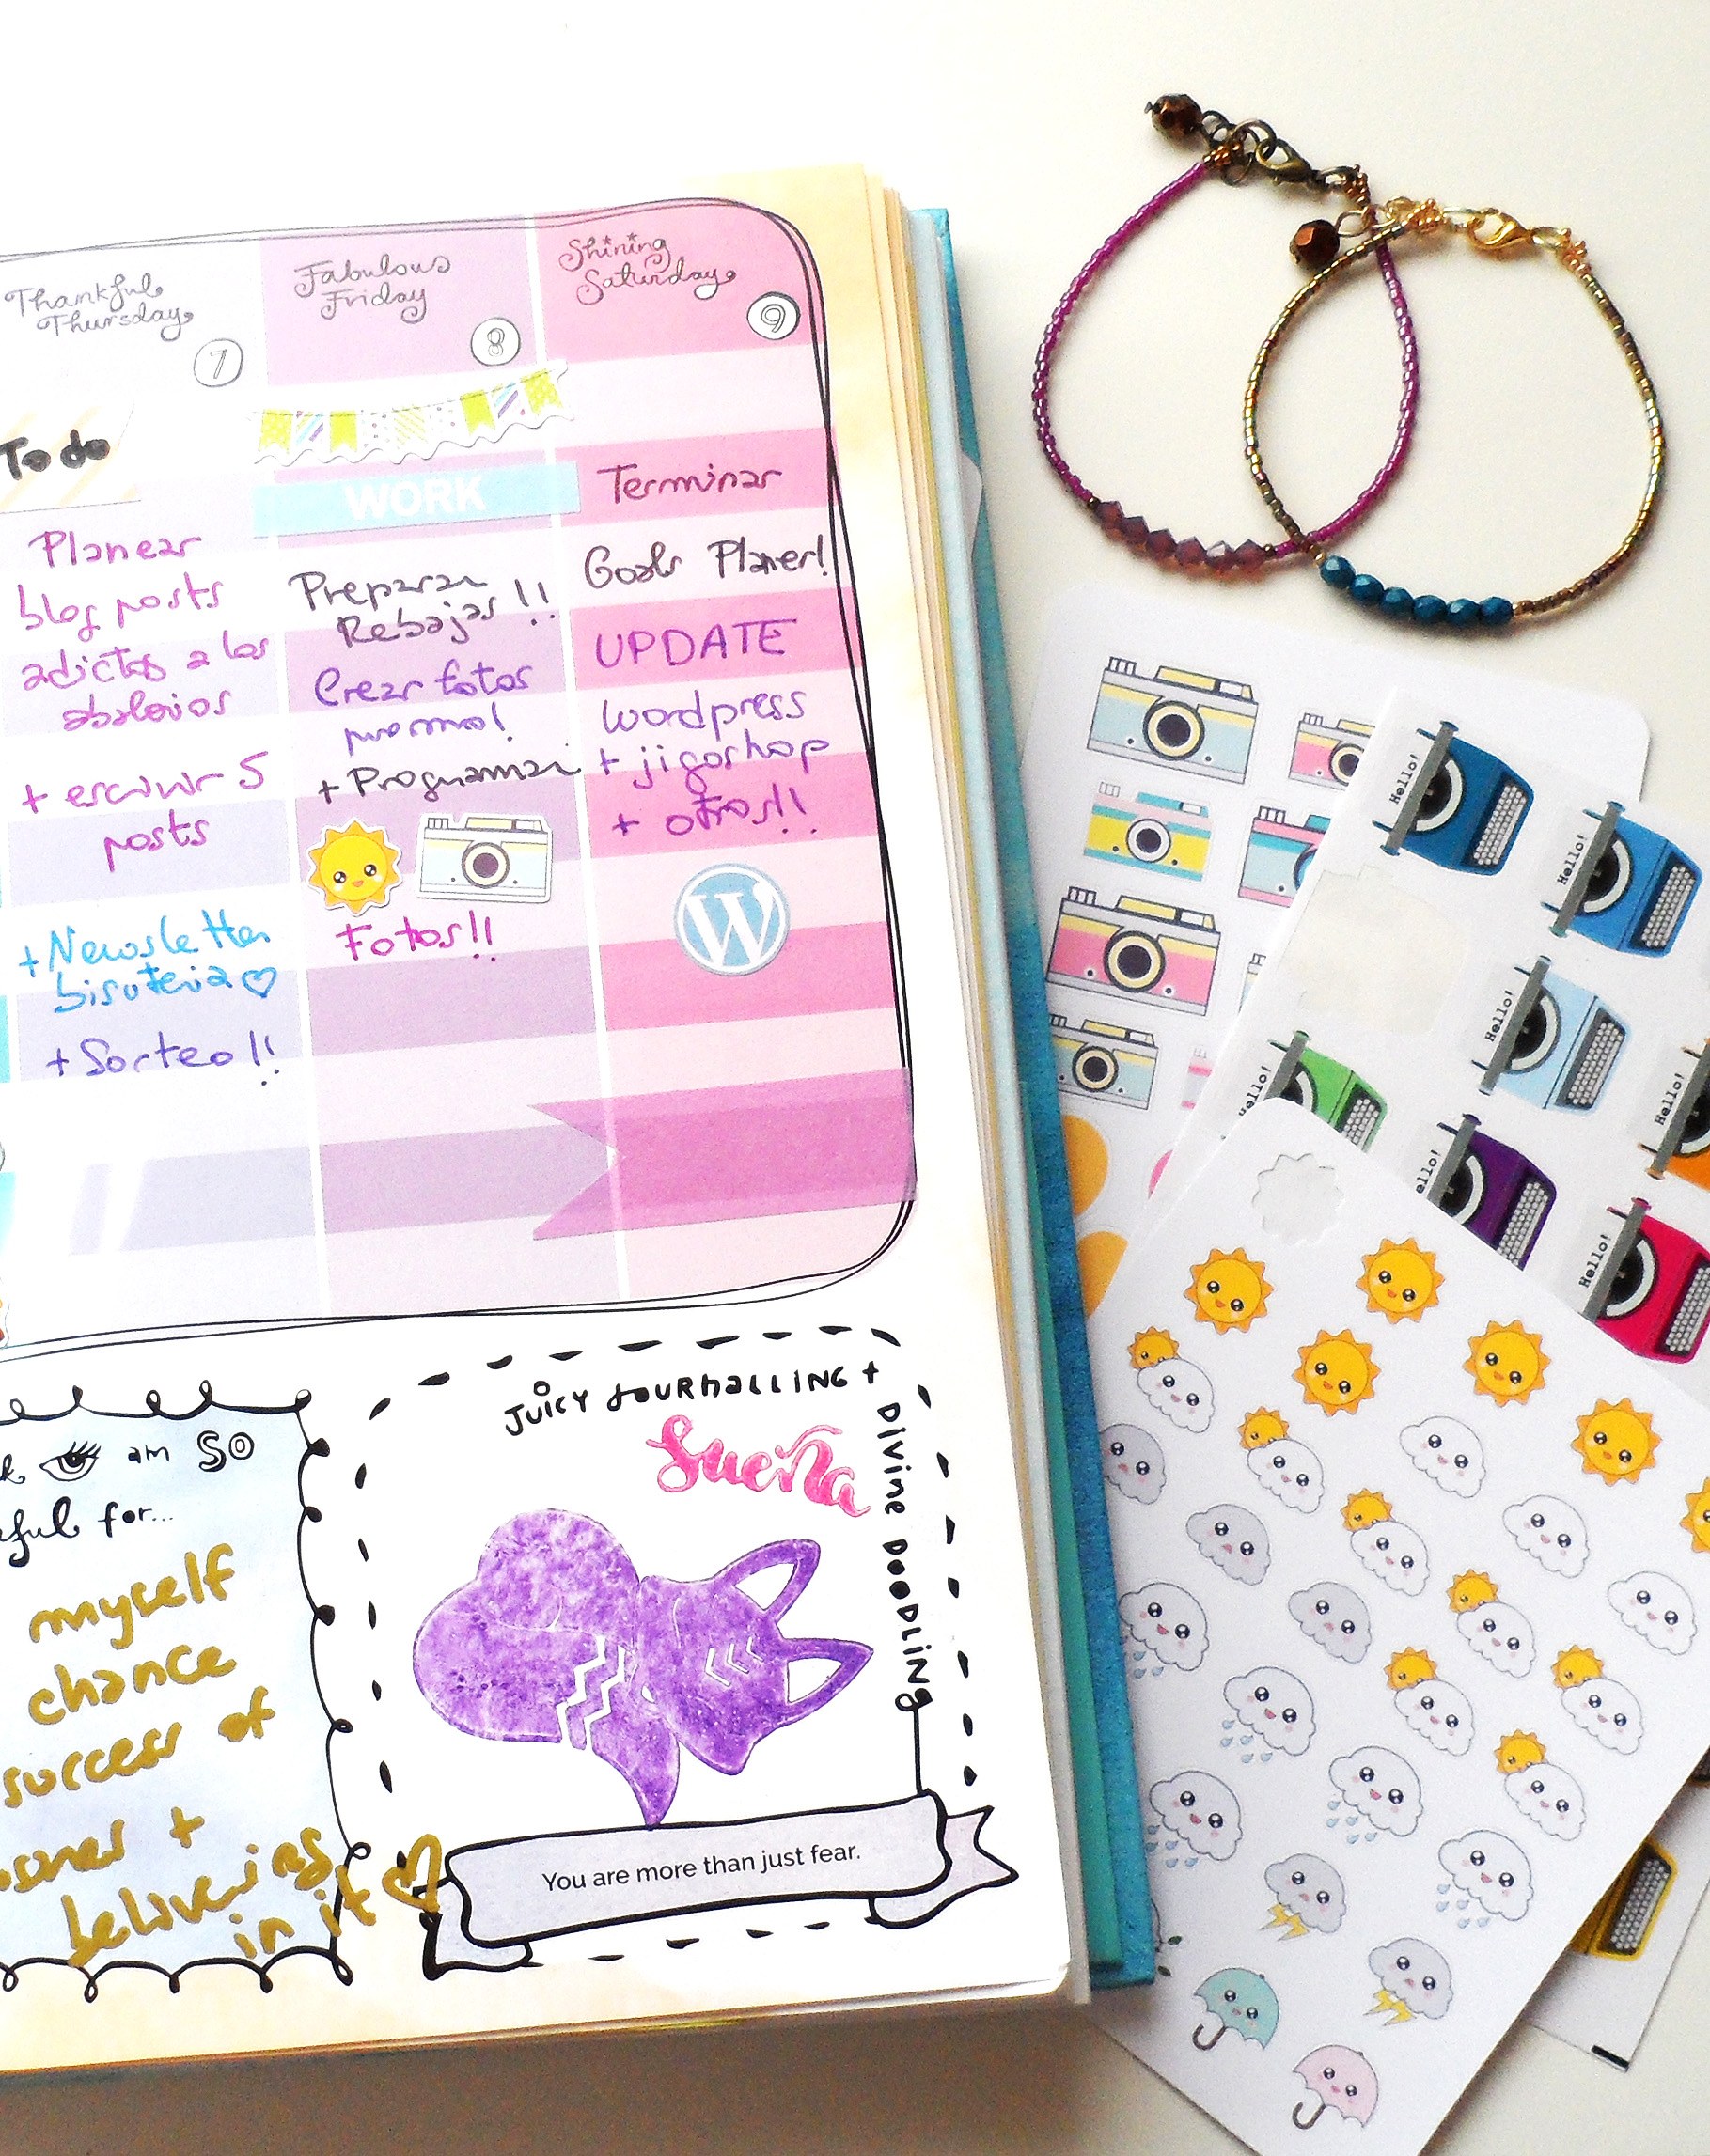 Thankful
Thursday
7
To do
Planear
blog posts
adictos a los
abalorios
+ escribir 5
posts
+ Newsletter
bisuteria
+ Sorteo!!
Fabulous
Friday
8
WORK
Preparar
Rebajas!!
Crear fotos
promo!
+ Programar
Fotos!!
Shining
Saturday
9
Terminar
Goals Planer!
UPDATE
wordpress
+ jigoshop
+ otros!!
W
am so
for...
myself
chance
success of
+
in it
JUICY JOURNALLING +
DIVINE DOODLING
Sueña
You are more than just fear.
Hello!
Hello!
Hello!
Hello!
Hello!
Hello!